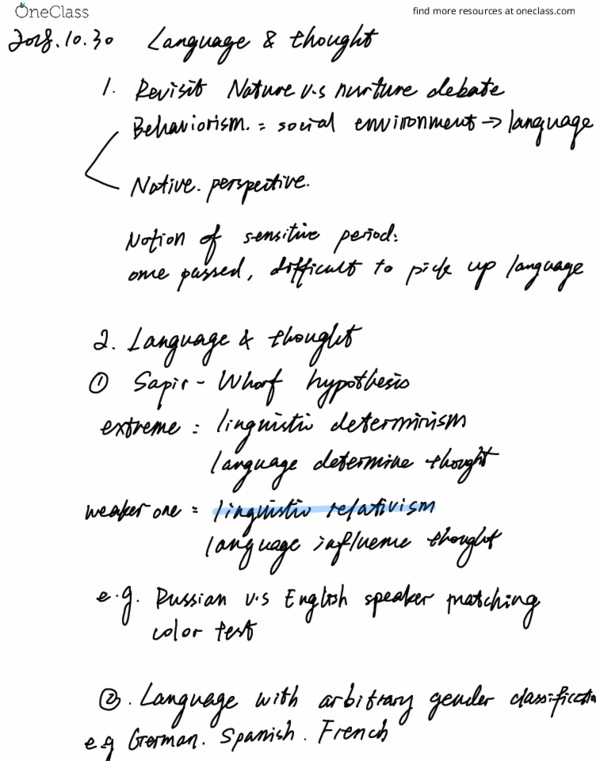 OneClass
find more resources at oneclass.com
2018.10.30 Language & thought
1. Revisit Nature v.s nurture debate
Behaviorism. = social environment → language
Native. perspective.
Notion of sensitive period:
once passed, difficult to pick up language
2. Language & thought
① Sapir - Whorf hypothesis
extreme = linguistic determinism
language determine thought
weaker one = linguistic relativism
language influence thought
e.g. Russian v.s English speaker matching
color test
②. Language with arbitrary gender classification
e.g German. Spanish. French